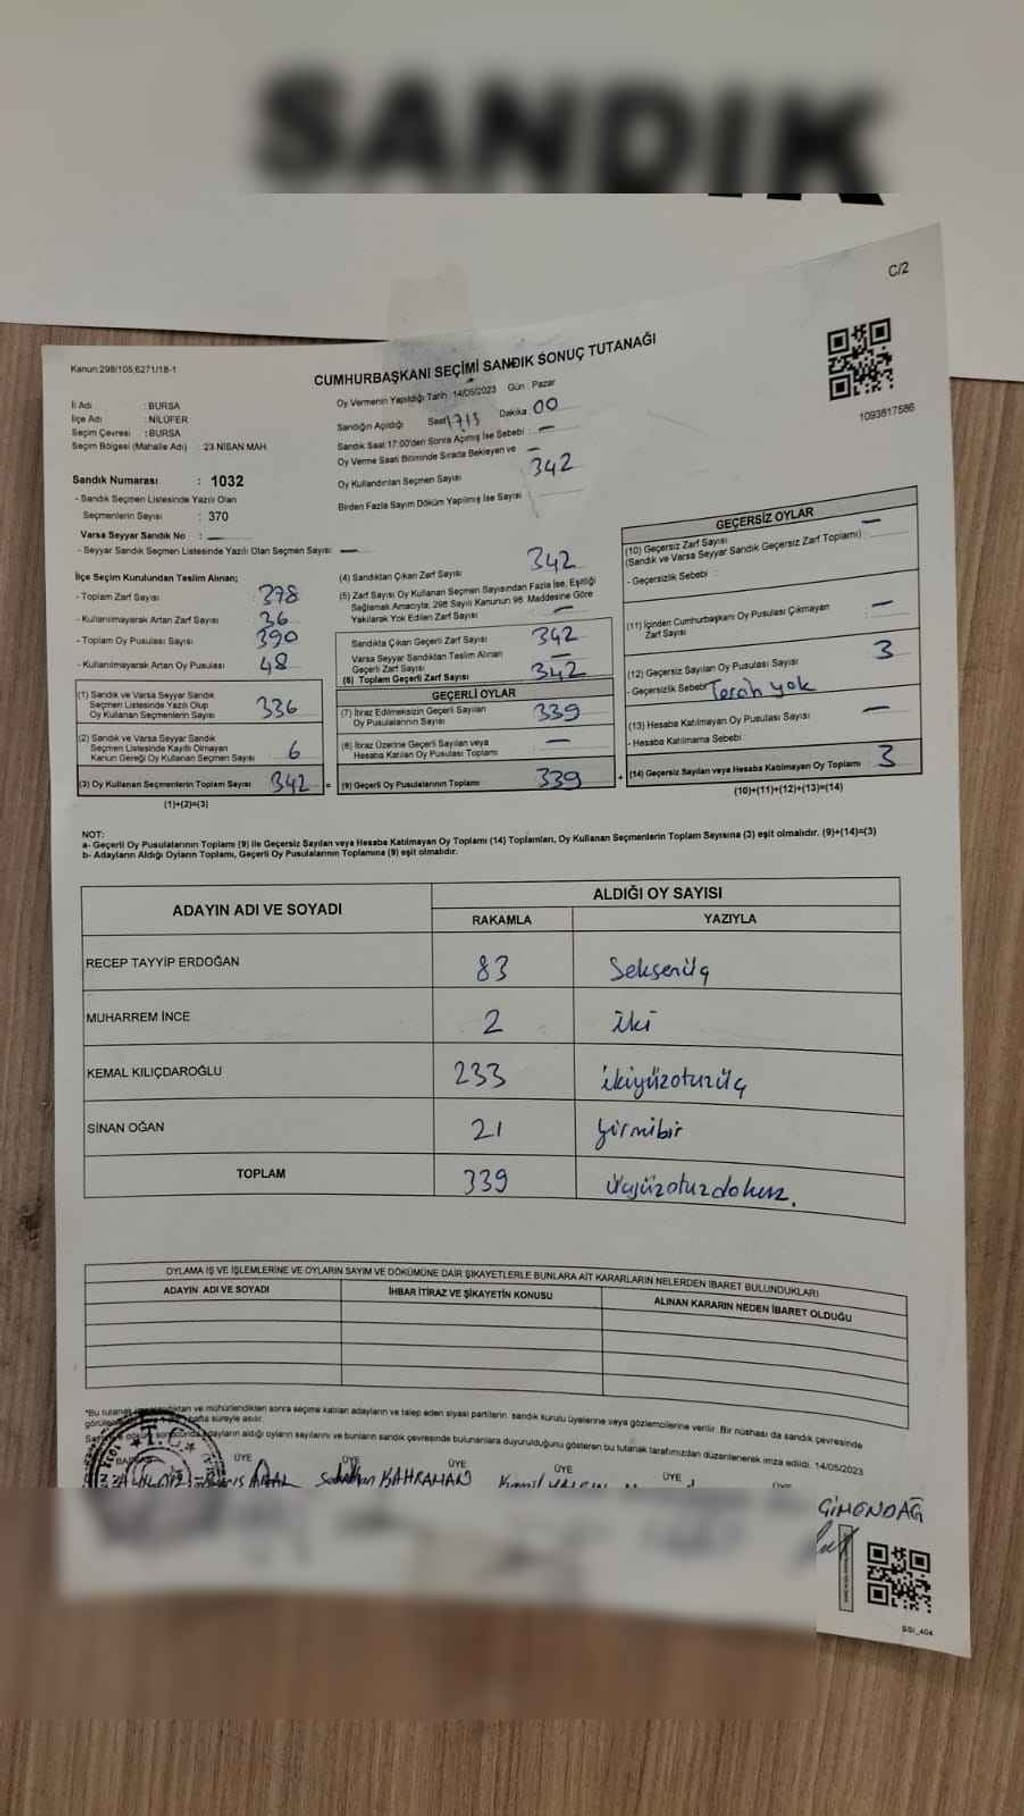 SANDIK
C/2
Kanun:298/105,6271/18-1
CUMHURBAŞKANI SEÇİMİ SANDIK SONUÇ TUTANAĞI
1093817586
İl Adı : BURSA
İlçe Adı : NİLÜFER
Seçim Çevresi : BURSA
Seçim Bölgesi (Mahalle Adı) 23 NİSAN MAH
Sandık Numarası : 1032
- Sandık Seçmen Listesinde Yazılı Olan
Seçmenlerin Sayısı : 370
Varsa Seyyar Sandık No : —
- Seyyar Sandık Seçmen Listesinde Yazılı Olan Seçmen Sayısı: —
Oy Vermenin Yapıldığı Tarih :14/05/2023 Gün : Pazar
Sandığın Açıldığı Saat Dakika 00
Sandık Saat 17:00'den Sonra Açılmış İse Sebebi : —
Oy Verme Saati Bitiminde Sırada Bekleyen ve —
Oy Kullandırılan Seçmen Sayısı 342
Birden Fazla Sayım Döküm Yapılmış İse Sayısı
İlçe Seçim Kurulundan Teslim Alınan;
- Toplam Zarf Sayısı 378
- Kullanılmayarak Artan Zarf Sayısı 36
- Toplam Oy Pusulası Sayısı 390
- Kullanılmayarak Artan Oy Pusulası 48
(1) Sandık ve Varsa Seyyar Sandık
Seçmen Listesinde Yazılı Olup
Oy Kullanan Seçmenlerin Sayısı 336
(2) Sandık ve Varsa Seyyar Sandık
Seçmen Listesinde Kayıtlı Olmayan
Kanun Gereği Oy Kullanan Seçmen Sayısı 6
(3) Oy Kullanan Seçmenlerin Toplam Sayısı 342 =
(1)+(2)=(3)
(4) Sandıktan Çıkan Zarf Sayısı 342
(5) Zarf Sayısı Oy Kullanan Seçmen Sayısından Fazla İse, Eşitliği
Sağlamak Amacıyla; 298 Sayılı Kanunun 98. Maddesine Göre
Yakılarak Yok Edilen Zarf Sayısı —
Sandıkta Çıkan Geçerli Zarf Sayısı 342
Varsa Seyyar Sandıktan Teslim Alınan
Geçerli Zarf Sayısı —
(6) Toplam Geçerli Zarf Sayısı 342
GEÇERLİ OYLAR
(7) İtiraz Edilmeksizin Geçerli Sayılan
Oy Pusulalarının Sayısı 339
(8) İtiraz Üzerine Geçerli Sayılan veya
Hesaba Katılan Oy Pusulası Toplamı —
(9) Geçerli Oy Pusulalarının Toplamı 339 +
GEÇERSİZ OYLAR
(10) Geçersiz Zarf Sayısı —
(Sandık ve Varsa Seyyar Sandık Geçersiz Zarf Toplamı)
- Geçersizlik Sebebi :
(11) İçinden Cumhurbaşkanı Oy Pusulası Çıkmayan
Zarf Sayısı —
(12) Geçersiz Sayılan Oy Pusulası Sayısı 3
- Geçersizlik Sebebi Tercih yok
(13) Hesaba Katılmayan Oy Pusulası Sayısı —
- Hesaba Katılmama Sebebi
(14) Geçersiz Sayılan veya Hesaba Katılmayan Oy Toplamı 3
(10)+(11)+(12)+(13)=(14)
NOT:
a- Geçerli Oy Pusulalarının Toplamı (9) ile Geçersiz Sayılan veya Hesaba Katılmayan Oy Toplamı (14) Toplamları, Oy Kullanan Seçmenlerin Toplam Sayısına (3) eşit olmalıdır. (9)+(14)=(3)
b- Adayların Aldığı Oyların Toplamı, Geçerli Oy Pusulalarının Toplamına (9) eşit olmalıdır.
ADAYIN ADI VE SOYADI ALDIĞI OY SAYISI
RAKAMLA YAZIYLA
RECEP TAYYİP ERDOĞAN 83 Seksenüç
MUHARREM İNCE 2 iki
KEMAL KILIÇDAROĞLU 233 ikiyüzotuzüç
SİNAN OĞAN 21 yirmibir
TOPLAM 339 üçyüzotuzdokuz.
OYLAMA İŞ VE İŞLEMLERİNE VE OYLARIN SAYIM VE DÖKÜMÜNE DAİR ŞİKAYETLERLE BUNLARA AİT KARARLARIN NELERDEN İBARET BULUNDUKLARI
ADAYIN ADI VE SOYADI İHBAR İTİRAZ VE ŞİKAYETİN KONUSU ALINAN KARARIN NEDEN İBARET OLDUĞU
*Bu tutanak ve mühürlendikten sonra seçime katılan adayların ve talep eden siyasi partilerin, sandık kurulu üyelerine veya gözlemcilerine verilir. Bir nüshası da sandık çevresinde
hafta süreyle asılır.
adayların aldığı oyların sayılarını ve bunların sandık çevresinde bulunanlara duyurulduğunu gösteren bu tutanak tarafımızdan düzenlenerek imza edildi. 14/05/2023
T.C.
ÜYE ÜYE ÜYE ÜYE ÜYE
KAHRAMAN
GİMENDAĞ